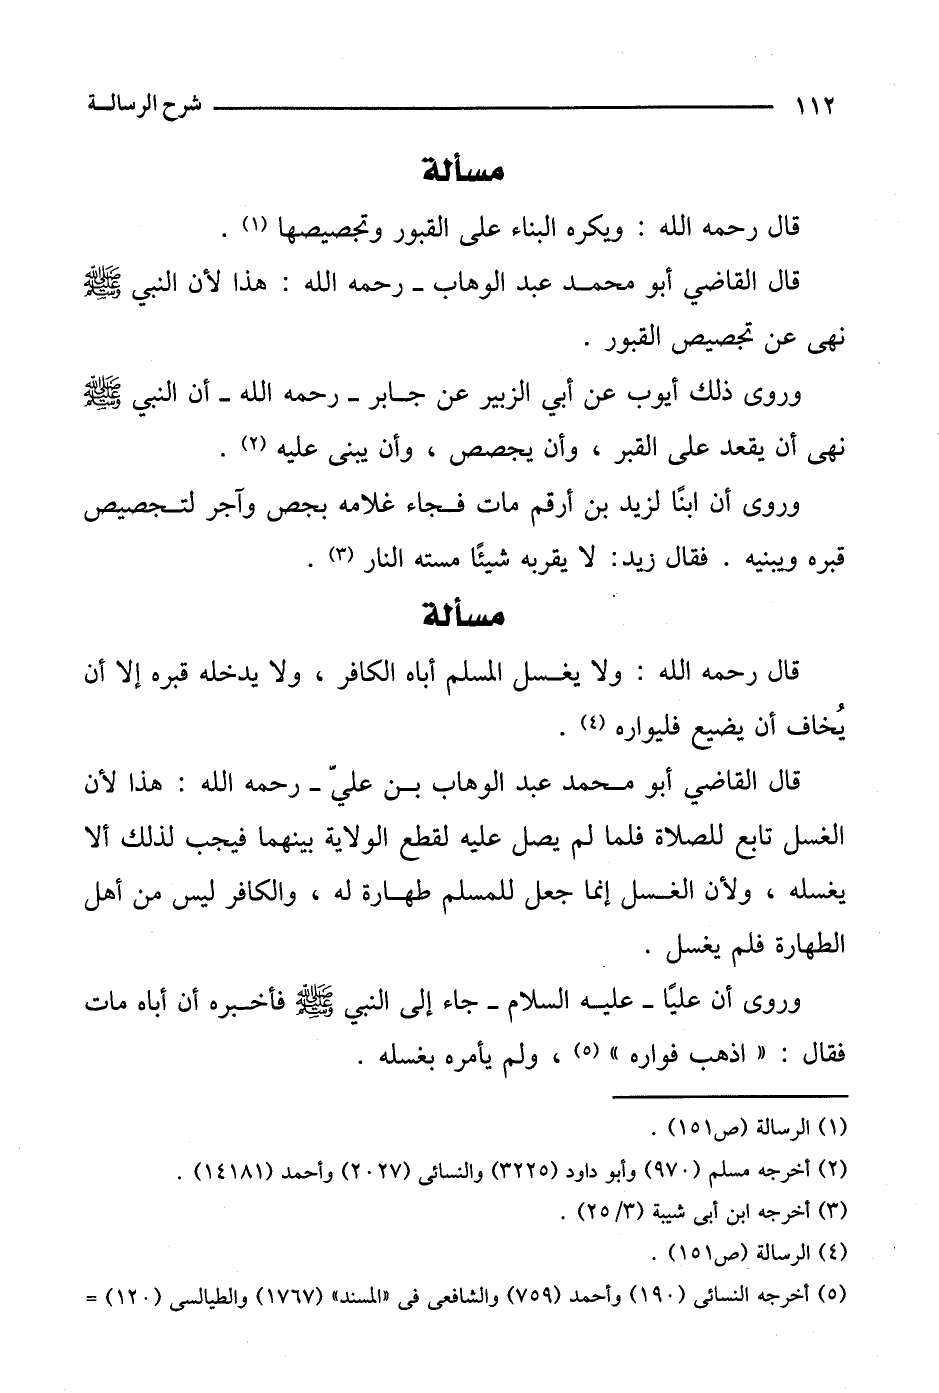 ١١٢ شرح الرسالة
مسألة
قال رحمه الله : ويكره البناء على القبور وتجصيصها (١) .
قال القاضي أبو محمد عبد الوهاب ـ رحمه الله : هذا لأن النبي ﷺ
نهى عن تجصيص القبور .
وروى ذلك أيوب عن أبي الزبير عن جابر ـ رحمه الله ـ أن النبي ﷺ
نهى أن يقعد على القبر ، وأن يجصص ، وأن يبنى عليه (٢) .
وروى أن ابنًا لزيد بن أرقم مات فجاء غلامه بجص وآجر لتجصيص
قبره ويبنيه . فقال زيد: لا يقربه شيئًا مسته النار (٣) .
مسألة
قال رحمه الله : ولا يغسل المسلم أباه الكافر ، ولا يدخله قبره إلا أن
يُخاف أن يضيع فليواره (٤) .
قال القاضي أبو محمد عبد الوهاب بن عليّ ـ رحمه الله : هذا لأن
الغسل تابع للصلاة فلما لم يصل عليه لقطع الولاية بينهما فيجب لذلك ألا
يغسله ، ولأن الغسل إنما جعل للمسلم طهارة له ، والكافر ليس من أهل
الطهارة فلم يغسل .
وروى أن عليًا ـ عليه السلام ـ جاء إلى النبي ﷺ فأخبره أن أباه مات
فقال : « اذهب فواره » (٥) ، ولم يأمره بغسله .
(١) الرسالة (ص١٥١) .
(٢) أخرجه مسلم (٩٧٠) وأبو داود (٣٢٢٥) والنسائى (٢٠٢٧) وأحمد (١٤١٨١) .
(٣) أخرجه ابن أبى شيبة (٢٥/٣) .
(٤) الرسالة (ص١٥١) .
(٥) أخرجه النسائى (١٩٠) وأحمد (٧٥٩) والشافعى فى «المسند» (١٧٦٧) والطيالسى (١٢٠) =